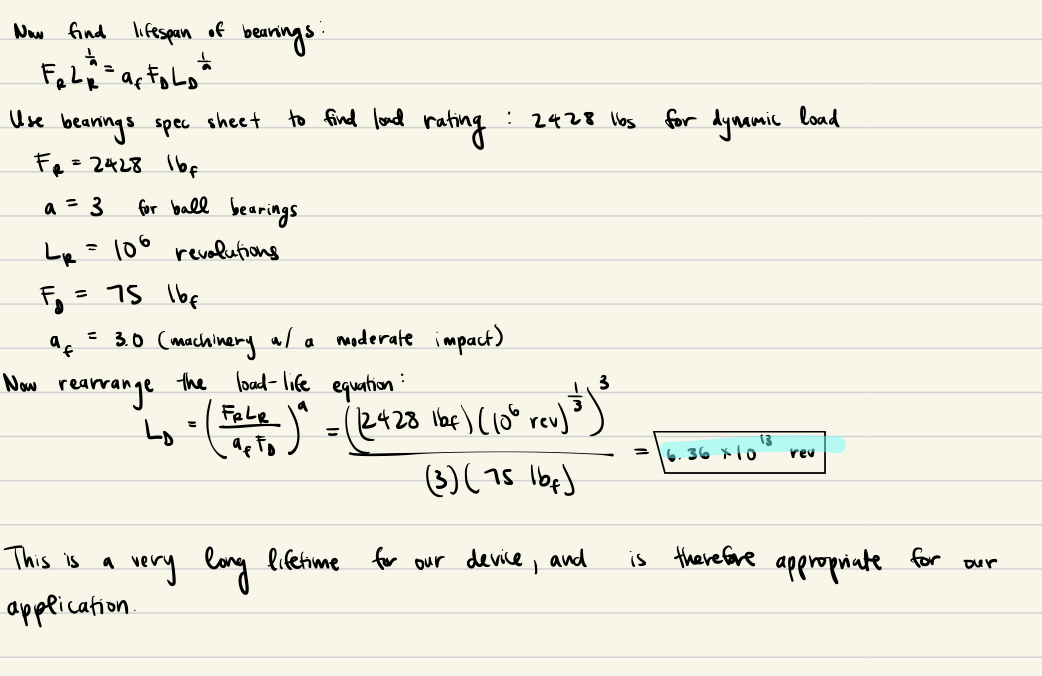 Now find lifespan of bearings:
F_R L_R^{1/a} = a_f F_D L_D^{1/a}
Use bearings spec sheet to find load rating : 2428 lbs for dynamic load
F_R = 2428 lb_f
a = 3 for ball bearings
L_R = 10^6 revolutions
F_D = 75 lb_f
a_f = 3.0 (machinery w/ a moderate impact)
Now rearrange the load-life equation:
L_D = (F_R L_R / a_f F_D)^a = ((2428 lbf)(10^6 rev)^{1/3})^3 / (3)(75 lb_f) = 6.36 × 10^13 rev
This is a very long lifetime for our device, and is therefore appropriate for our
application.